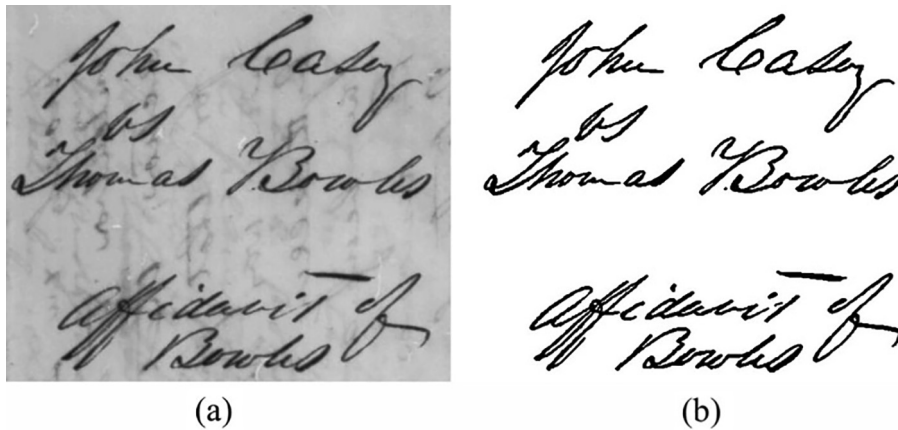 John Casey
vs
Thomas Y. Bowles
Affidavit of
Bowles
(a)
John Casey
vs
Thomas Y. Bowles
Affidavit of
Bowles
(b)